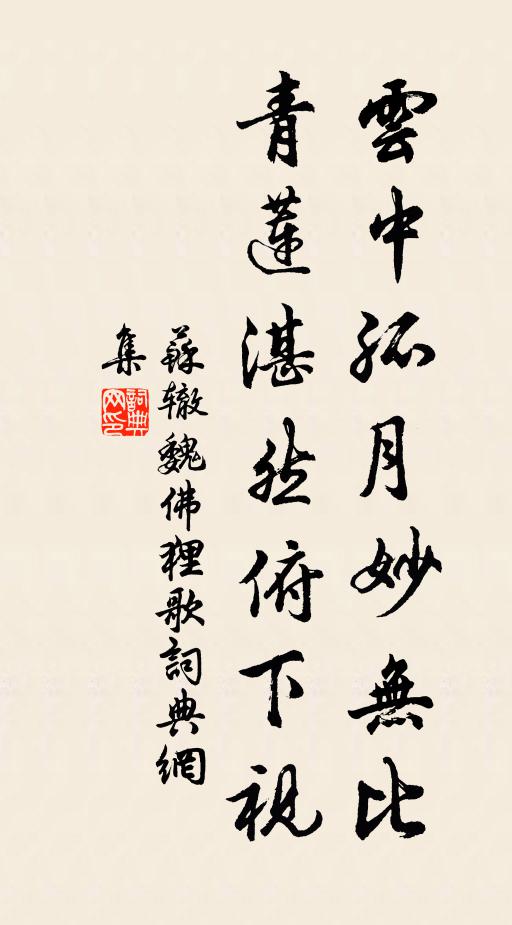 雲中孤月妙無比
青蓮湛然俯下視
蘇辙魏佛狸歌詞典網
集
詞典
网印